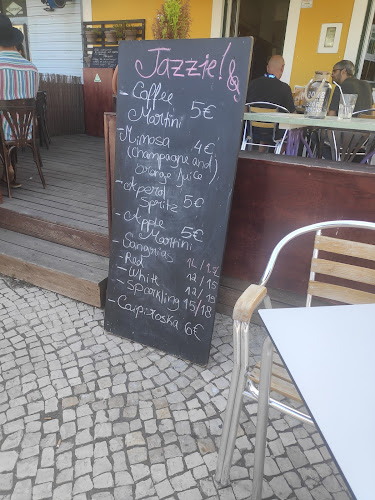 Jazzie!
- Coffee
Martini 5€
- Mimosa 4€
(Champagne and)
orange juice
- Aperol 5€
Spritz
- Apple 5€
Martini
- Sangrias
- Red 12/15
- White 12/15
- Sparkling 15/18
- Caipiroska 6€